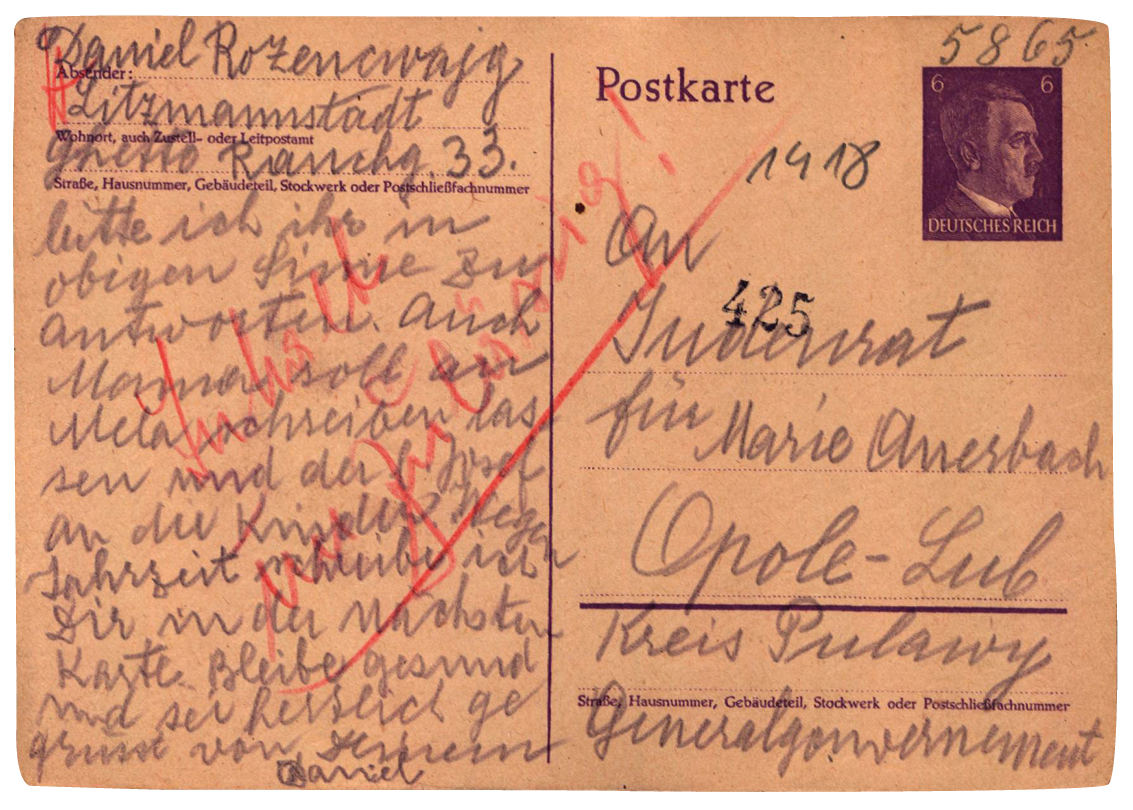 Daniel Rozencwajg
Absender:
Litzmannstadt
Wohnort, auch Zustell- oder Leitpostamt
Ghetto Rauchg. 33.
Straße, Hausnummer, Gebäudeteil, Stockwerk oder Postschließfachnummer
bitte ich ihr in
obigen Sinne zu
antworten. Auch
Mama soll an
Mela schreiben las
sen und der Josef
an die Kinder? Wegen
Jahrzeit schreibe ich
Dir in der nächsten
Karte. Bleibe gesund
und sei herzlich ge
grüsst von Deinem
Daniel
Inhalt
unzulässig!
Postkarte
5865
6 6
DEUTSCHES REICH
1418
An
425
Judenrat
für Marie Auerbach
Opole-Lub
Kreis Pulawy
Straße, Hausnummer, Gebäudeteil, Stockwerk oder Postschließfachnummer
Generalgouvernement